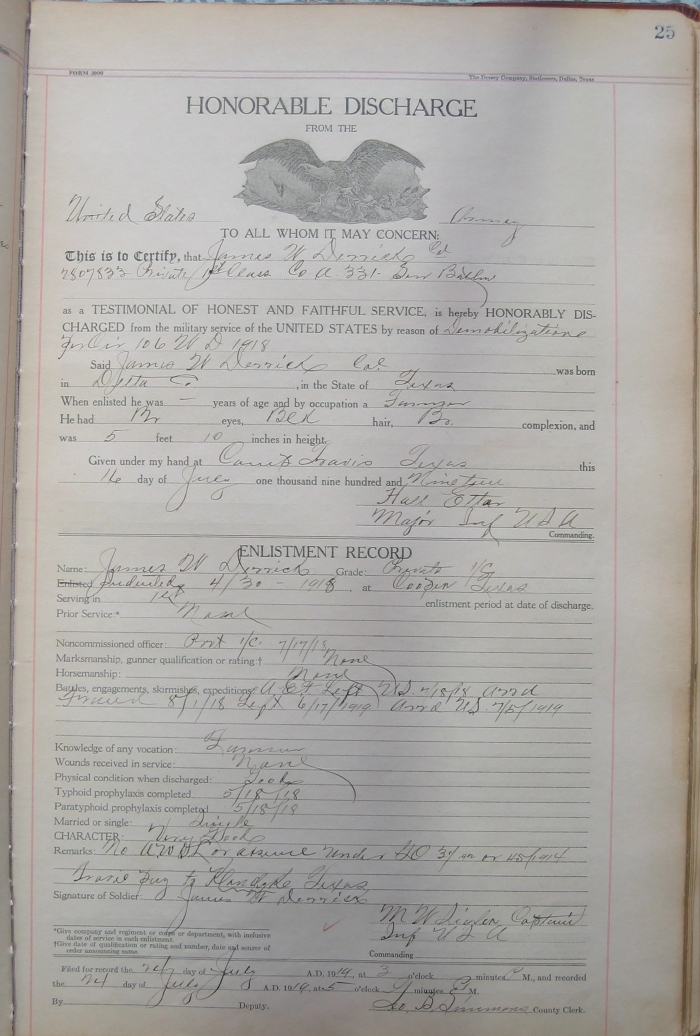 25
FORM 3000 The Dorsey Company, Stationers, Dallas, Texas
HONORABLE DISCHARGE
FROM THE
United States Army
TO ALL WHOM IT MAY CONCERN:
This is to Certify, that James W Derrick Col
2807833 Private 1st Class Co A 331
as a TESTIMONIAL OF HONEST AND FAITHFUL SERVICE, is hereby HONORABLY DIS-
CHARGED from the military service of the UNITED STATES by reason of Demobilization
Cir 106 W D 1918
Said James W Derrick Col was born
in Delta Co , in the State of Texas
When enlisted he was — years of age and by occupation a Farmer
He had Br eyes, Blk hair, Br. complexion, and
was 5 feet 10 inches in height.
Given under my hand at Camp Travis Texas this
16 day of July one thousand nine hundred and Nineteen
Hall Etter
Major Inf U S A
Commanding.
ENLISTMENT RECORD
Name: James W Derrick Grade: Private 1/C
Enlisted Inducted 4/30 - 1918 at Cooper Texas
Serving in 1st enlistment period at date of discharge.
Prior Service:* None
Noncommissioned officer: 1/c. 7/17/18
Marksmanship, gunner qualification or rating:† None
Horsemanship: None
Battles, engagements, skirmishes, expeditions: A E F Left U.S. 7/18/18 Arrd
France 8/1/18 Left 6/17/1919 Arrd US 7/5/1919
Knowledge of any vocation: Farmer
Wounds received in service: None
Physical condition when discharged: Good
Typhoid prophylaxis completed 5/18/18
Paratyphoid prophylaxis completed 5/18/18
Married or single: Single
CHARACTER: Very Good
Remarks: No AWOL or absence under GO 31 or 45/1914
to Klondyke Texas
Signature of Soldier: James W Derrick
M W Captain
Inf U S A
*Give company and regiment or corps or department, with inclusive
dates of service in each enlistment.
†Give date of qualification or rating and number, date and source of
order announcing same.
Commanding
Filed for record the 24 day of July A.D. 1919, at 3 o'clock minutes P M., and recorded
the 24 day of July A.D. 1919, at 5 o'clock minutes P M.
By Deputy. B Simmons County Clerk.